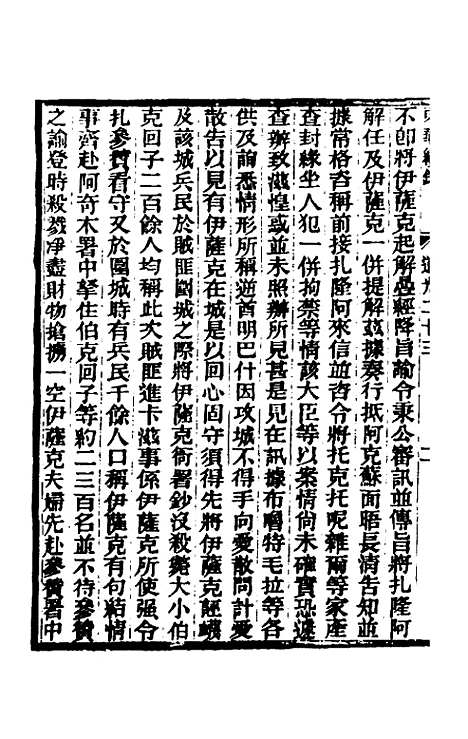 不卽將伊薩克起解曡經降旨諭令秉公審訊並傳旨將扎隆阿
解任及伊薩克一併提解茲據奏行抵阿克蘇面晤長淸告知並
據常格咨稱前接扎隆阿來信並咨令將托克托呢雜爾等家產
查封緣坐人犯一併拘禁等情該大臣等以案情尙未確實恐遽
查辦致滋惶惑並未照辦所見甚是見在訊據布嚕特毛拉等各
供及前悉情形所稱逆酋明巴什因攻城不得手向愛散問計愛
散告以見有伊薩克在城是以囘心固守須得先將伊薩克誣衊
及該城兵民於賊匪圍城之際將伊薩克衙署鈔沒殺斃大小伯
克囘子二百餘人均稱此次賊匪進卡滋事係伊薩克所使强令
扎參贊看守又於圍城時有兵民千餘人口稱伊薩克有句結情
事齊赴阿奇木署中拏住伯克囘子等約二三百名並不待參贊
之諭登時殺戮淨盡財物搶擄一空伊薩克夫婦先赴參贊署中